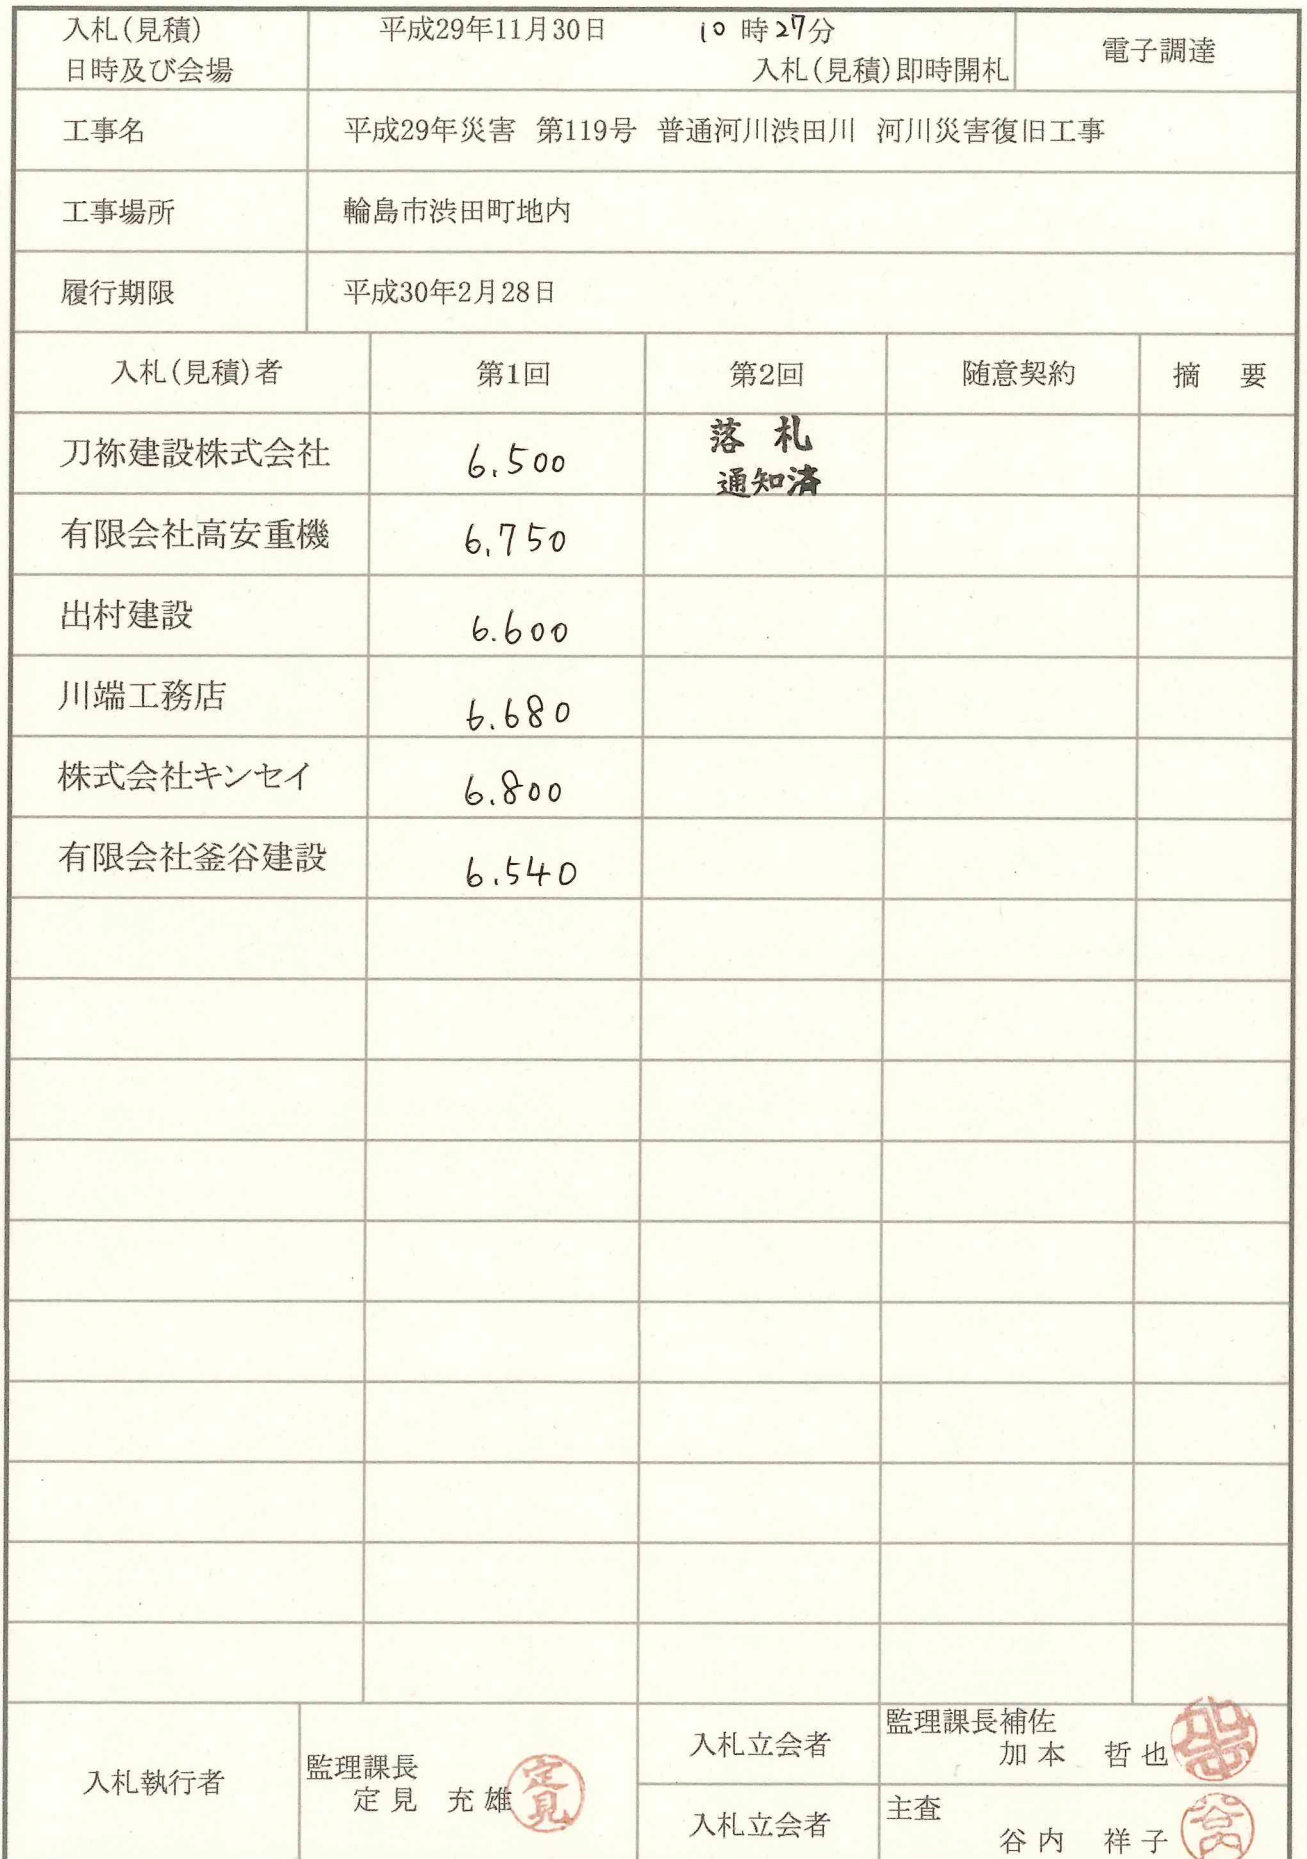 入札(見積)
日時及び会場
平成29年11月30日 10時27分
入札(見積)即時開札
電子調達
工事名 平成29年災害 第119号 普通河川渋田川 河川災害復旧工事
工事場所 輪島市渋田町地内
履行期限 平成30年2月28日
入札(見積)者 第1回 第2回 随意契約 摘 要
刀祢建設株式会社 6.500 落札
通知済
有限会社高安重機 6.750
出村建設 6.600
川端工務店 6.680
株式会社キンセイ 6.800
有限会社釜谷建設 6.540
入札執行者
監理課長
定見 充雄 定見
入札立会者
監理課長補佐
加本 哲也
入札立会者
主査
谷内 祥子 谷内